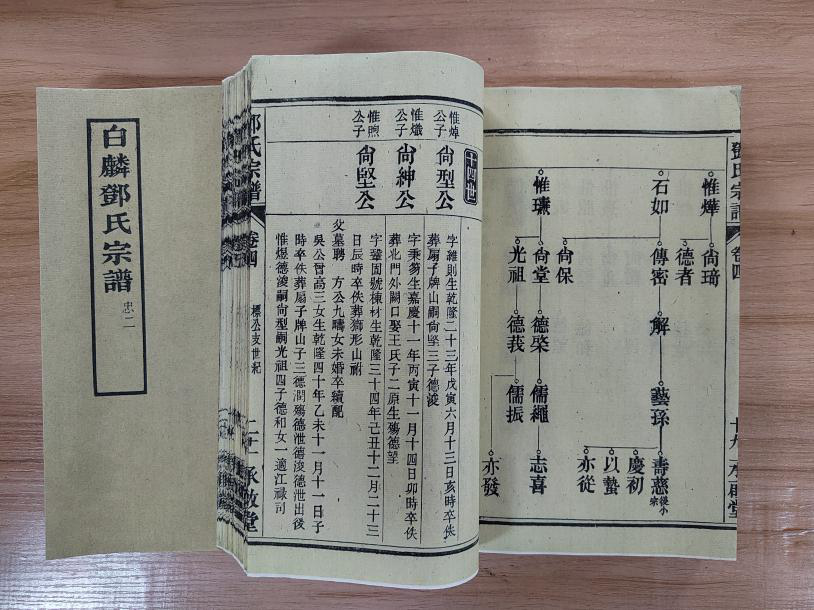 白麟鄧氏宗譜
忠二
十四世
惟焯公子
尙型公
字維則生乾隆二十三年戊寅六月十三日亥時卒佚
葬扇子牌山嗣尙堅三子德浚
惟熾公子
尙紳公
字秉笏生嘉慶十一年丙寅十一月十四日卯時卒佚
葬北門外關口娶王氏子二原生殤德望
惟煦公子
尙堅公
字鞏固號棟材生乾隆三十四年己丑十二月二十三
日辰時卒佚葬獅形山祔
父墓聘 方公九疇女未婚卒續配
吳公晉高三女生乾隆四十年乙未十一月十一日子
時卒佚葬扇子牌山子三德潤殤德泄德浚德泄出後
惟煜德浚嗣尙型嗣光祖四子德和女一適江祿司
氏宗譜
卷四
標公支世紀
二十
承啟堂
鄧氏宗譜
卷四
十九
承啟堂
惟燁
尙琦
德者
石如
傳密
解
藝孫
壽慈從小宗
慶初
以蟄
亦從
尙保
惟㻽
尙堂
德棨
儒繩
志喜
光祖
德莪
儒振
亦發